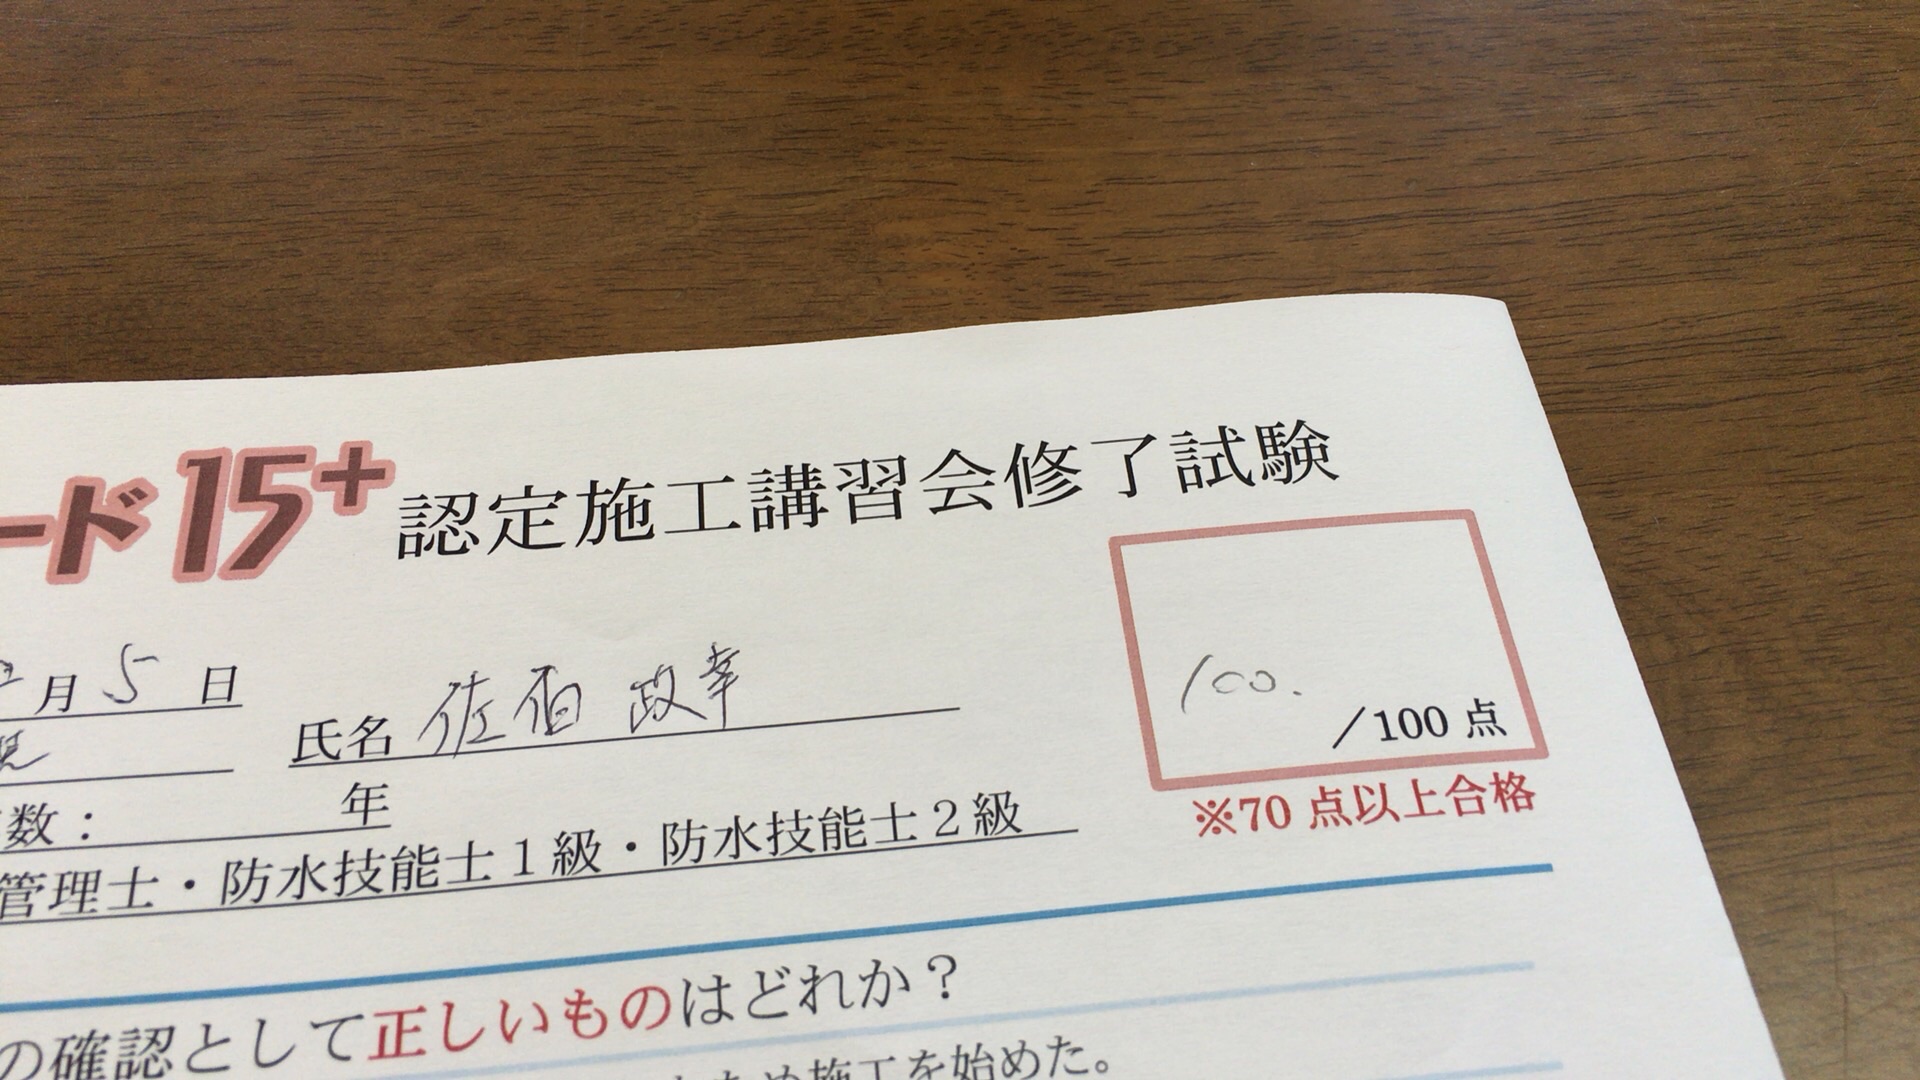 ード15+ 認定施工講習会修了試験
月 5 日
氏名 佐伯 政幸
100.
/100 点
数: 年
※70 点以上合格
管理士・防水技能士1級・防水技能士2級
の確認として正しいものはどれか?
ため施工を始めた。